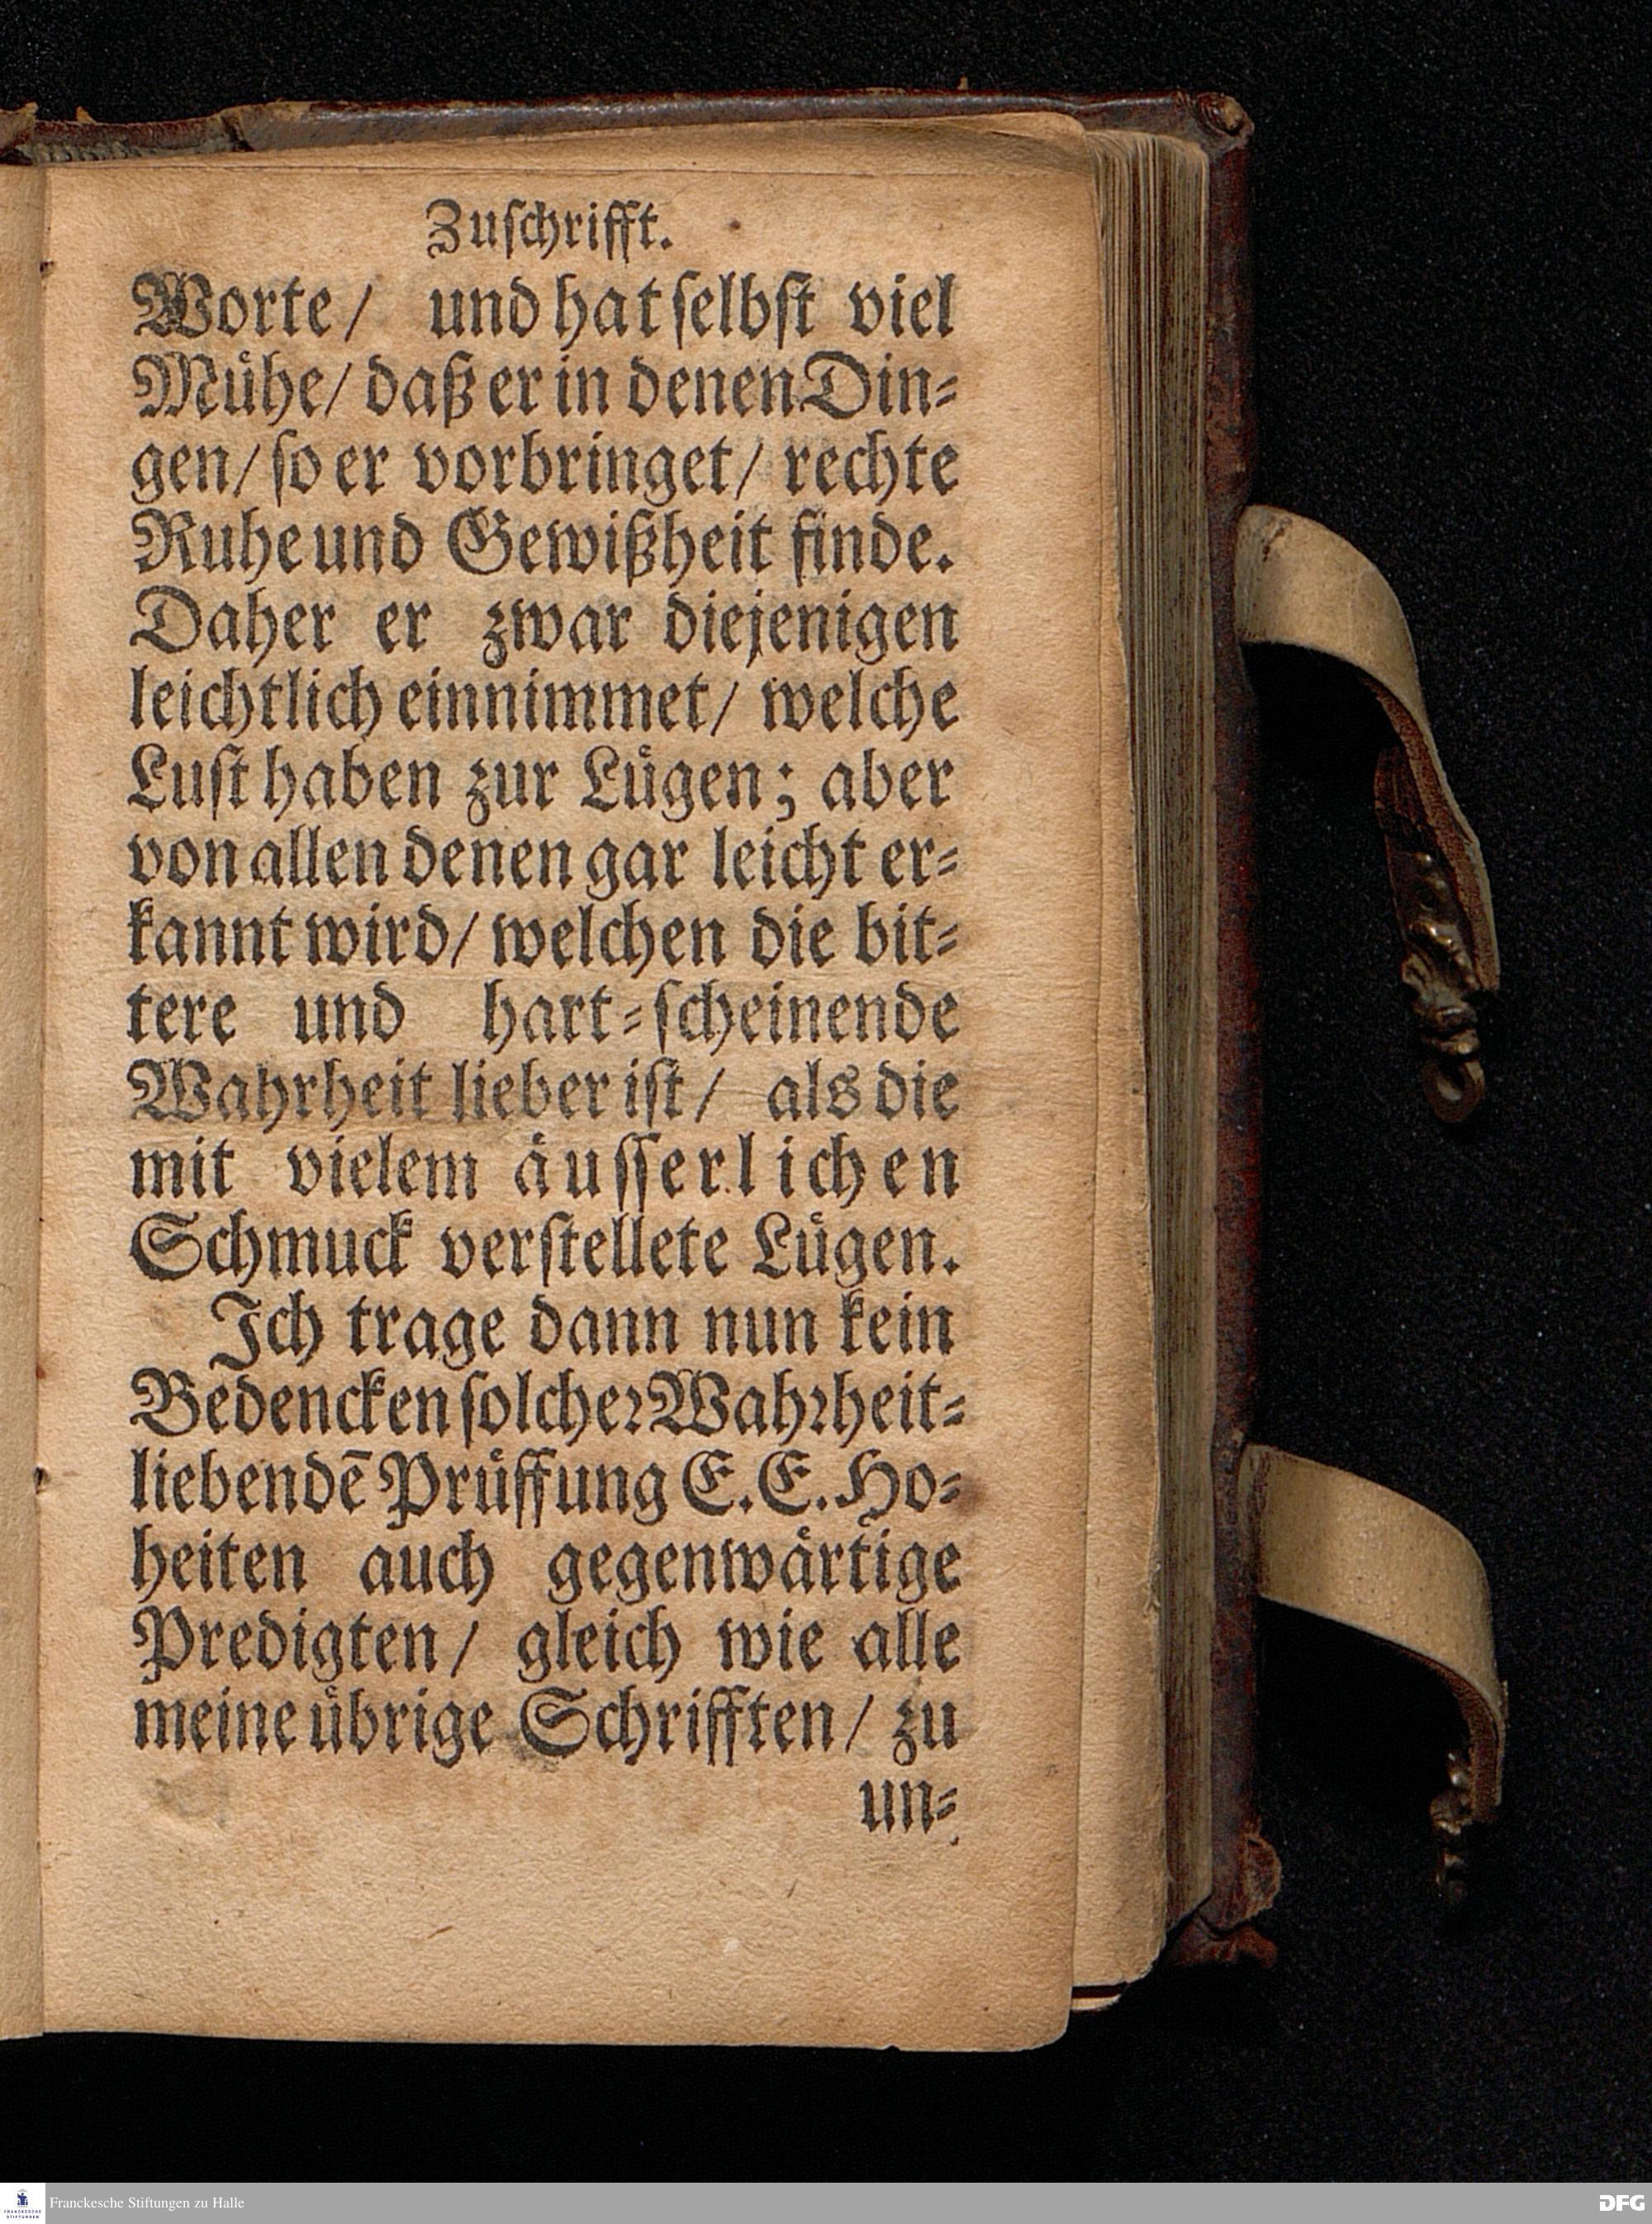 Zuſchrifft.
Worte/ und hat ſelbſt viel
Muͤhe/ daß er in denen Din⸗
gen/ ſo er vorbringet/ rechte
Ruhe und Gewißheit finde.
Daher er zwar diejenigen
leichtlich einnimmet/ welche
Luſt haben zur Luͤgen; aber
von allen denen gar leicht er⸗
kannt wird/ welchen die bit⸗
tere und hart⸗ſcheinende
Wahrheit lieber iſt/ als die
mit vielem aͤuſſerlichen
Schmuck verſtellete Luͤgen.
Ich trage dann nun kein
Bedencken ſolcheꝛ Wahꝛheit⸗
liebendē Pruͤffung E. E. Ho⸗
heiten auch gegenwaͤrtige
Predigten/ gleich wie alle
meine uͤbrige Schrifften/ zu
un⸗
Franckesche Stiftungen zu Halle
FRANCKESCHE
STIFTUNGEN
DFG